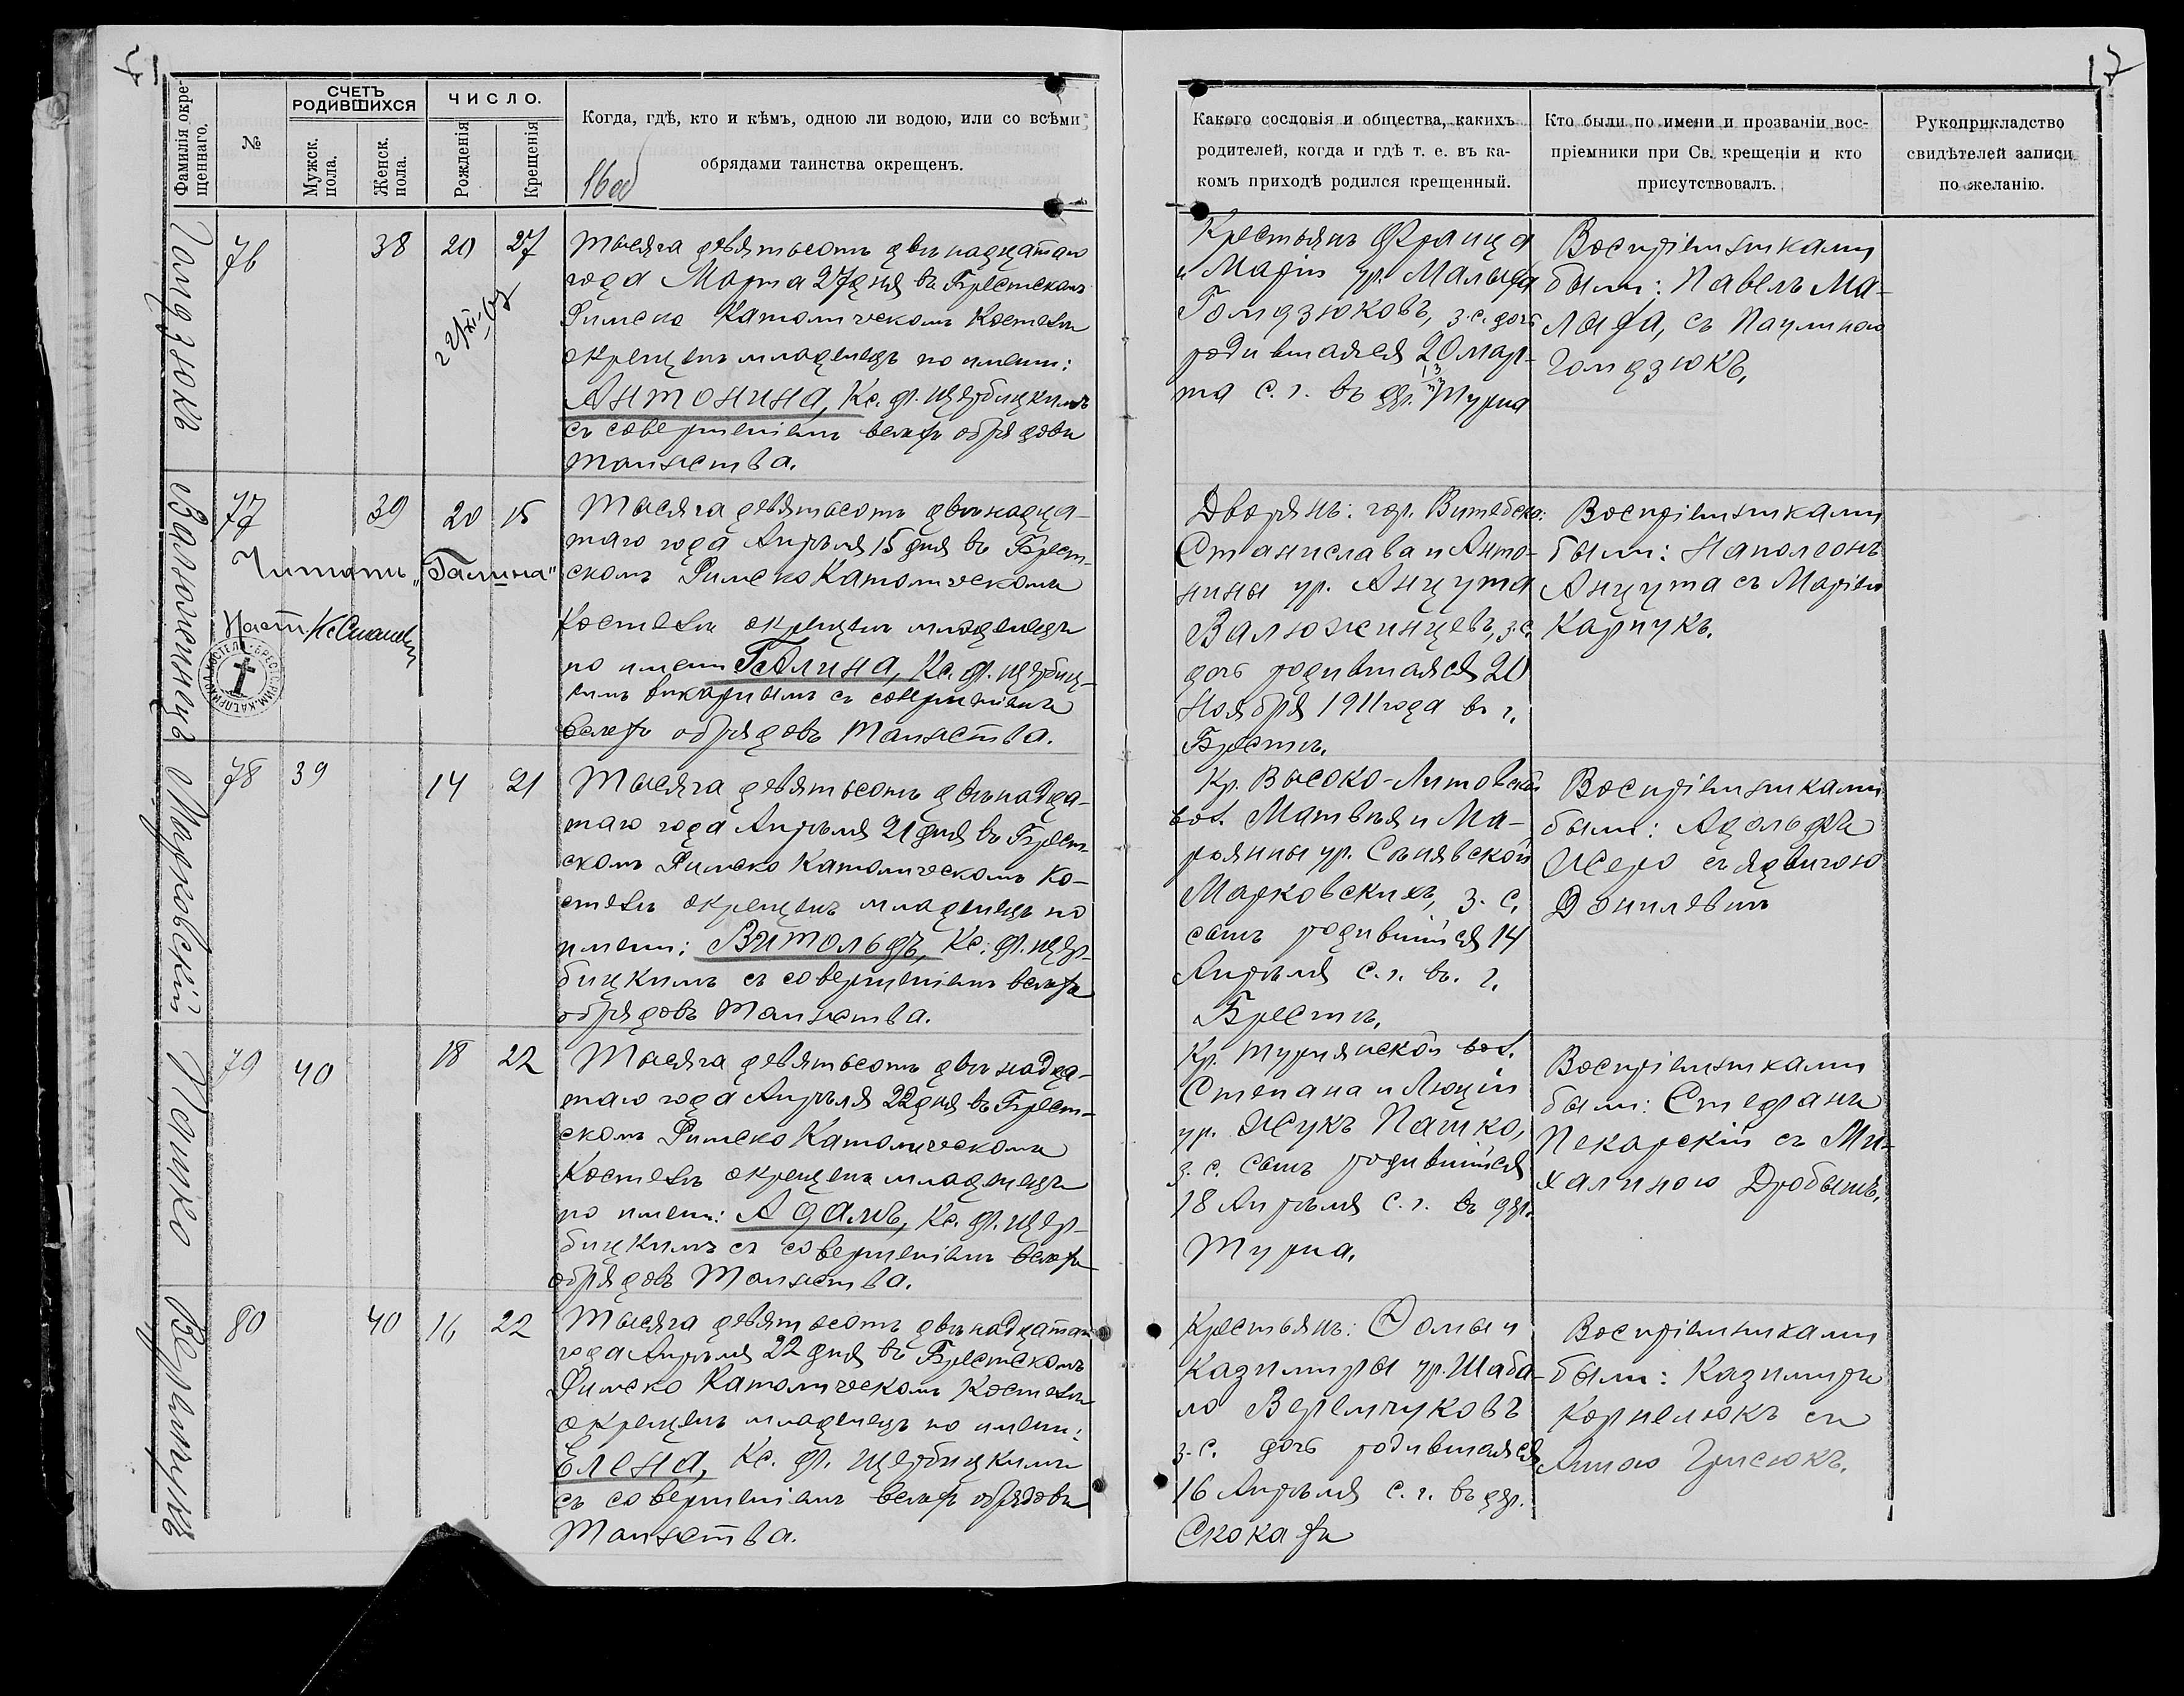 17
Фамилія окре-
щеннаго.
№
СЧЕТЪ
РОДИВШИХСЯ
Мужск.
пола.
Женск.
пола.
ЧИСЛО.
Рожденія
Крещенія
Когда, гдѣ, кто и кѣмъ, одною ли водою, или со всѣми
обрядами таинства окрещенъ.
16об
Какого сословія и общества, какихъ
родителей, когда и гдѣ т. е. въ ка-
комъ приходѣ родился крещенный.
Кто были по имени и прозваніи вос-
пріемники при Св. крещеніи и кто
присутствовалъ.
Рукоприкладство
свидѣтелей записи
по желанію.
Голидзюкъ
76
38
20
27
Тысяча девятьсотъ двѣнадцатаго
года Марта 27 дня въ Брестскомъ
Римско Католическомъ Костелѣ
окрещенъ младенецъ по имени:
Антонина, Кс. Ф. Щербицкимъ
съ совершеніемъ всѣхъ обрядовъ
Таинства.
Крестьянъ Франца
и Маріи ур. Малыха
Гомдзюковъ, з.с. дочь
родившаяся 20 мар-
та с. г. въ др. Турна
Воспріемниками
были: Павелъ Ма-
лыха, съ Паулиною
Гомдзюкъ.
Валюжинцъ
77
39
20
15
Читать „Галина"
Наст.
БРЕС. РИМ. КАТ. ПРИХОД. КОСТЕЛА
Тысяча девятьсотъ двѣнадца-
таго года Апрѣля 15 дня въ Брест-
скомъ Римско Католическомъ
Костелѣ окрещенъ младенецъ
по имени Галина, Кс. Ф. Щербиц-
кимъ викаріемъ съ совершеніемъ
всѣхъ обрядовъ Таинства.
Дворянъ: гор. Витебска:
Станислава и Анто-
нины ур. Анцута
Валюжинцевъ, з.с.
дочь родившаяся 20
Ноября 1911 года въ г.
Брестѣ.
Воспріемниками
были: Наполеонъ
Анцута съ Маріею
Карпукъ.
Марковскій
78
39
14
21
Тысяча девятьсотъ двѣнадца-
таго года Апрѣля 21 дня въ Брест-
скомъ Римско Католическомъ Ко-
стелѣ окрещенъ младенецъ по
имени: Витольдъ, Кс. Ф. Щер-
бицкимъ съ совершеніемъ всѣхъ
обрядовъ Таинства.
Кр. Высоко-Литовской
вол. Матвѣя и Ма-
рьянны ур. Сѣнявской
Марковскихъ, з. с.
сынъ родившійся 14
Апрѣля с. г. въ. г.
Брестѣ.
Воспріемниками
были: Адольфъ
Исеро съ Ядвигою
Данилевичъ
Пашко
79
40
18
22
Тысяча девятьсотъ двѣнадца-
таго года Апрѣля 22 дня въ Брест-
скомъ Римско Католическомъ
Костелѣ окрещенъ младенецъ
по имени: Адамъ, Кс. Ф. Щер-
бицкимъ съ совершеніемъ всѣхъ
обрядовъ Таинства.
Кр. Турнянской вол.
Степана и Люціи
ур. Жукъ Пашко,
з. с. сынъ родившійся
18 Апрѣля с. г. въ др.
Турна.
Воспріемниками
были: Стефанъ
Пекарскій съ Ми-
халиною Дробышъ.
Веремчукъ
80
40
16
22
Тысяча девятьсотъ двѣнадцатаго
года Апрѣля 22 дня въ Брестскомъ
Римско Католическомъ Костелѣ
окрещенъ младенецъ по имени:
Елена, Кс. Ф. Щербицкимъ
съ совершеніемъ всѣхъ обрядовъ
Таинства.
Крестьянъ: Ѳомы и
Казимиры ур. Шаба-
ло Веремчуковъ
з. с. дочь родившаяся
16 Апрѣля с. г. въ др.
Скокахъ
Воспріемниками
были: Казимиръ
Корнелюкъ съ
Анною Грисюкъ.